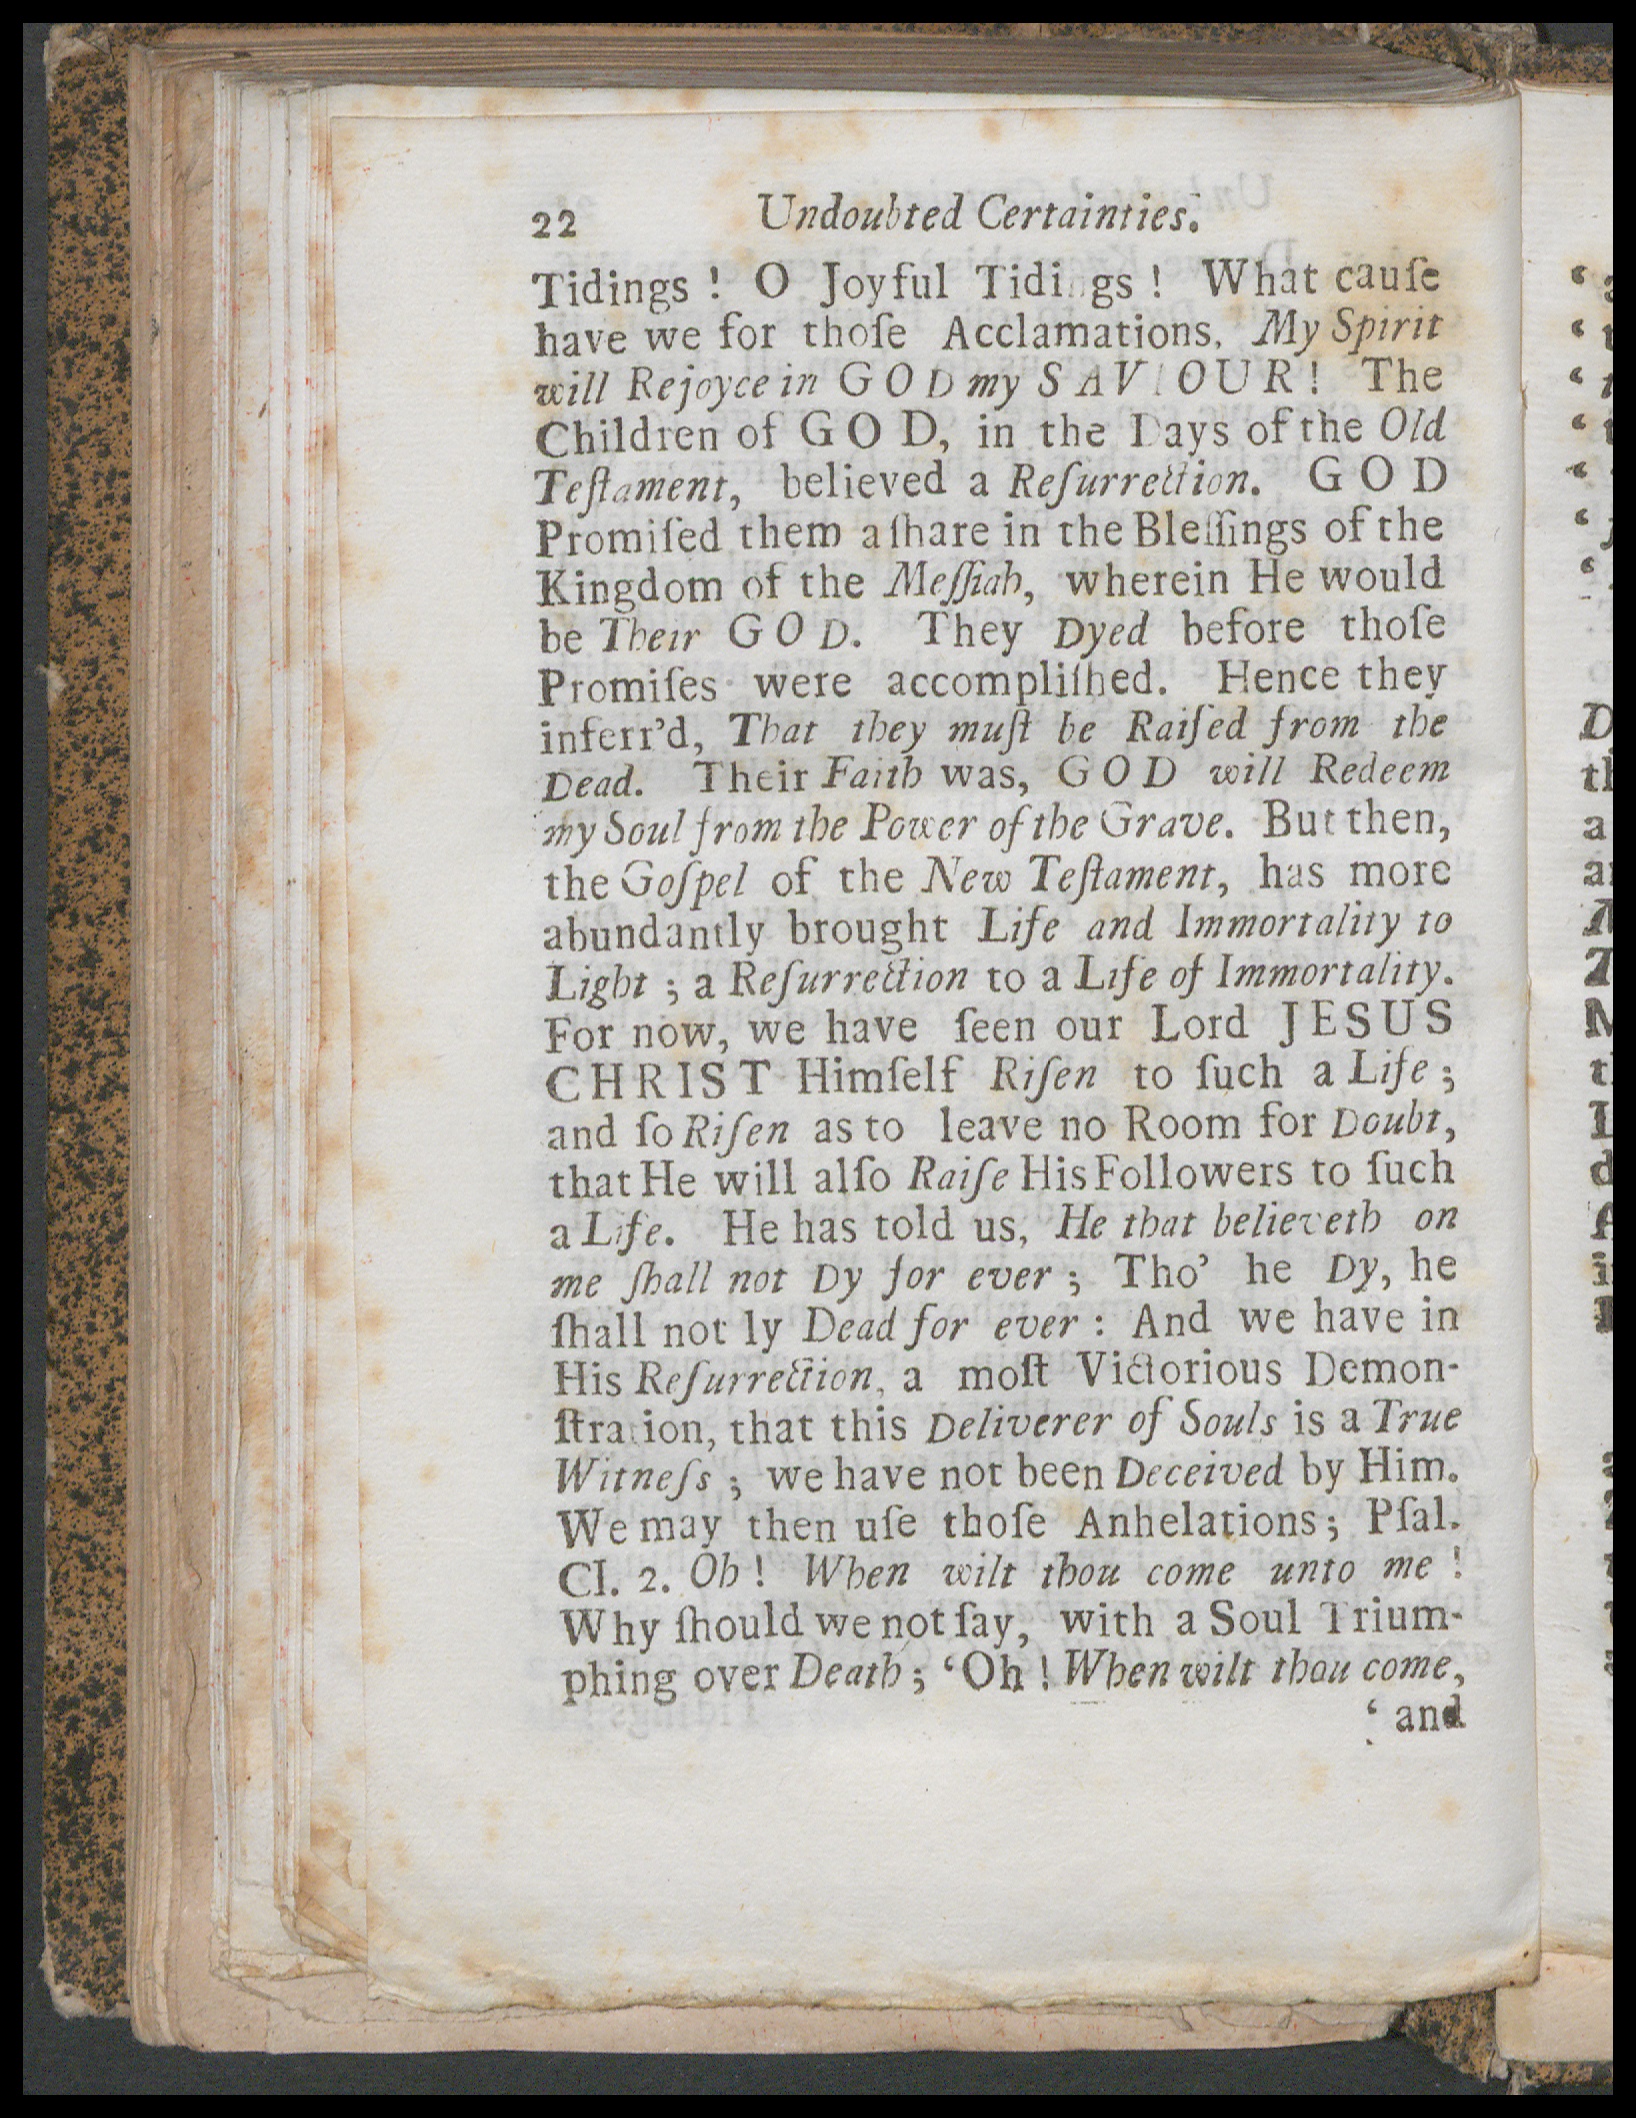 22 Undoubted Certainties.
Tidings ! O Joyful Tidings ! What cauſe
have we for thoſe Acclamations, My Spirit
will Rejoyce in GOD my SAVIOUR! The
Children of GOD, in the Days of the Old
Teſtament, believed a Reſurrection. GOD
Promiſed them a ſhare in the Bleſſings of the
Kingdom of the Meſſiah, wherein He would
be Their GOD. They Dyed before thoſe
Promiſes were accompliſhed. Hence they
inferr'd, That they muſt be Raiſed from the
Dead. Their Faith was, GOD will Redeem
my Soul from the Power of the Grave. But then,
the Goſpel of the New Teſtament, has more
abundantly brought Life and Immortality to
Light ; a Reſurrection to a Life of Immortality.
For now, we have ſeen our Lord JESUS
CHRIST Himſelf Riſen to ſuch a Life ;
and ſo Riſen as to leave no Room for Doubt,
that He will alſo Raiſe His Followers to ſuch
a Life. He has told us, He that believeth on
me ſhall not Dy for ever ; Tho' he Dy, he
ſhall not ly Dead for ever : And we have in
His Reſurrection, a moſt Victorious Demon-
ſtration, that this Deliverer of Souls is a True
Witneſs ; we have not been Deceived by Him.
We may then uſe thoſe Anhelations ; Pſal.
CI. 2. Oh ! When wilt thou come unto me !
Why ſhould we not ſay, with a Soul Trium-
phing over Death ; ‘Oh ! When wilt thou come,
‘ and